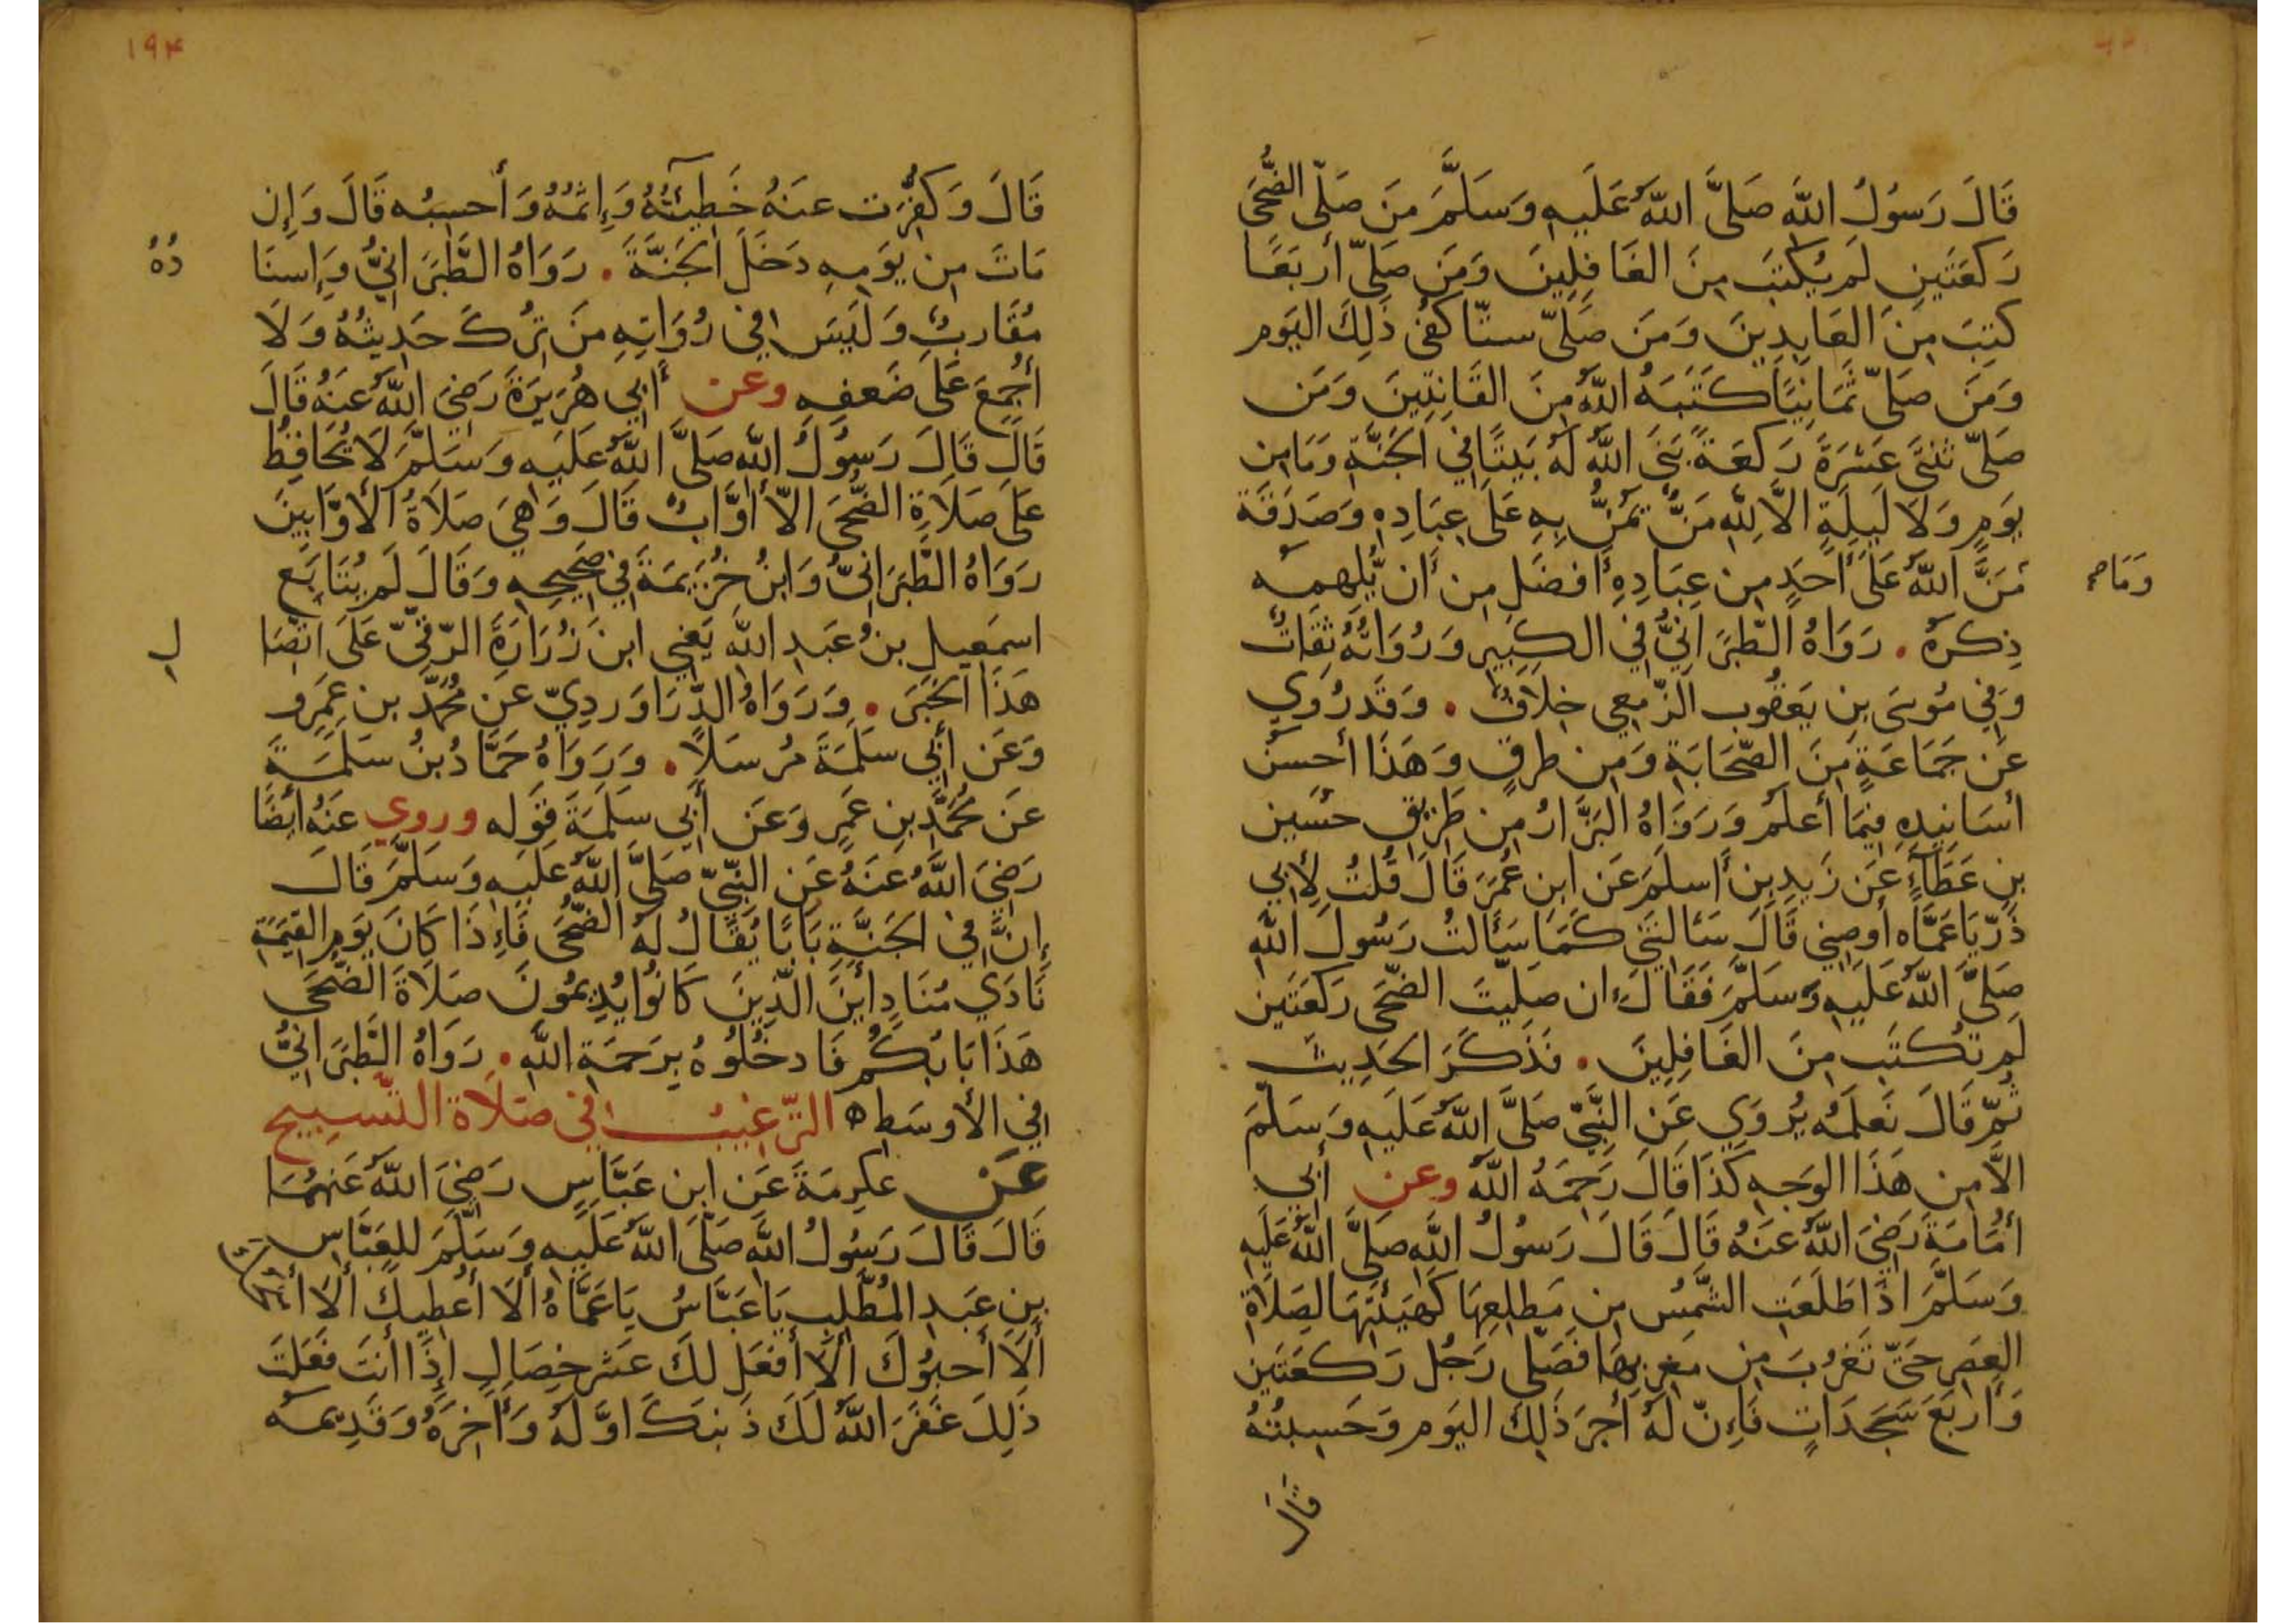 قَالَ رَسُولُ اللَّه صَلَّى اللَّهُ عَلَيهِ وَسَلَّمَ مَن صَلّى الضُّحَى
رَكعَتَينِ لَم يُكتَب مِنَ الغَافِلِينَ وَمَن صَلّى أربَعًا
كتِبَ مِنَ العَابِدِينَ وَمَن صَلّى ستّا كفى ذَلِكَ اليَوم
وَمَن صَلّى ثَمَانِيًا كَتَبَهُ اللَّهُ مِنَ القَانِتِينَ وَمَن
صَلّى ثنتَى عَشرَةَ رَكعَةً بَنَى اللَّهُ لَهُ بَيتًا فِي الجَنَّةِ وَمَا مِن
يَومٍ وَلَا لَيلَةٍ الَّا لِلَّهِ مَنٌّ يَمُنُّ بِهِ عَلَى عِبَادِهِ وَصَدَقَة
وَمَا صح
مَنَّ اللَّهُ عَلَى أَحَدٍ مِن عِبَادِهِ أَفضَلَ مِن أَن يُّلهمه
ذِكرَهُ . رَوَاهُ الطَّبَرَانِيُّ فِي الكَبِيرِ وَرُوَاتُهُ ثِقَاتٌ
وَفِي مُوسَى بنِ يَعقُوب الزّمعِي خِلَافٌ . وَقَد رُوِي
عَن جَمَاعَةٍ مِنَ الصّحَابَةِ وَمِن طرقٍ وَهَذَا أَحسَن
أسَانِيدِهِ فِيمَا أَعلَمُ وَرَوَاهُ البَزَّارُ مِن طَرِيقِ حُسَين
بنِ عَطَاءٍ عَن زَيدِ بنِ أَسلَمَ عَن ابنِ عُمَرَ قَالَ قُلتُ لِأَبِي
ذَرّ يَا عَمَّاه أَوصِنِي قَالَ سَئَالتَنِي كَمَا سَئَالتُ رَسُولَ اللَّه
صَلَّى اللَّهُ عَلَيهِ وَسَلَّمَ فَقَالَ إن صَلّيتَ الضّحَى رَكعَتَين
لَم تُكتَب مِنَ الغَافِلِينَ . فَذَكَرَ الحَدِيث
ثُمّ قَالَ نَعلَمُه يُروَي عَنِ النَّبِيّ صَلَّى اللَّهُ عَلَيهِ وَسَلَّمَ
الَّا مِن هَذَا الوَجهِ كَذَا قَالَ رَحِمَهُ اللَّهُ وعن أبِي
أُمَامَةَ رَضِيَ اللَّهُ عَنهُ قَالَ قَالَ رَسُولُ اللَّه صَلَّى اللَّهُ عَلَيهِ
وَسَلَّمَ اذَا طَلَعَتِ الشَّمسُ مِن مَطلِعِهَا كَهَيئَتِهَا لِصَلَاةِ
العَصرِ حَتَّى تَغرُبَ مِن مَغرِبِهَا فَصَلّى رَجُل رَكعَتَينِ
وَأَربَعَ سَجَدَاتٍ فَإِنّ لَهُ أَجرَ ذَلِكَ اليَومِ وَحَسِبتُهُ
قال
١٩٤
قَالَ وَكفِّرَت عنَهُ خَطِيئَتُهُ وَإِثمُهُ وَأحسِبُه قَالَ وَإِن
مَاتَ مِن يَومِهِ دَخَلَ الجَنَّةَ . رَوَاهُ الطَّبَرَانِيُّ وَإِسنَا
دُهُ
مُقَارِبٌ وَلَيسَ فِي رُوَاتِهِ مَن تُرِكَ حَدِيثُهُ وَلَا
أُجمِعَ عَلَى ضَعفِهِ وعن أَبِي هُرَيرَةَ رَضِيَ اللَّهُ عَنهُ قَالَ
قَالَ قَالَ رَسُولُ اللَّهِ صَلَّى اللَّهُ عَلَيهِ وَسَلَّمَ لَا يُحَافِظُ
عَلَى صَلَاةِ الضُّحَى الّا أَوَّابٌ قَالَ وَهِيَ صَلَاةُ الأَوَّابِينَ
رَوَاهُ الطَّبَرَانِيُّ وَابنُ خُزَيمَةَ فِي صَحِيحِهِ وَقَالَ لَم يُتَابَع
اسمَعِيلِ بنُ عَبدِ اللَّه يَعنِي ابنَ زُرَارَةَ الرّقِّيّ عَلَى اتّصَا
لِ
هَذَا الخَبَرَ . وَرَوَاهُ الدَّرَاوَردِيّ عَن مُحَمَّد بن عَمرِو
وَعَن أَبِي سَلَمَةَ مُرسَلًا . وَرَوَاهُ حَمَّادُ بنُ سَلَمَةَ
عَن مُحَمَّدِ بنِ عَمرٍ وَعَن أَبِي سَلَمَةَ قَولِه وروي عَنهُ أَيضًا
رَضِيَ اللَّهُ عَنهُ عَنِ النَّبِيّ صَلَّى اللَّهُ عَلَيهِ وَسَلَّمَ قَالَ
إِنَّ فِي الجَنَّةِ بَابًا يُقَالُ لَهُ الضُّحَى فَإِذَا كَانَ يَومِ القِيمَةِ
نَادَي مُنَادٍ أَينَ الَّذِينَ كَانُوا يُدِيمُونَ صَلَاةَ الضُّحَى
هَذَا بَابُكُم فَادخُلُوهُ بِرَحمَةِ اللَّهِ . رَوَاهُ الطَّبَرَانِيُّ
فِي الأَوسَطِ ه التّرغِيبُ فِي صَلَاة التَّسبِيح
عَن عكرِمَةَ عَن ابنِ عَبَّاسٍ رَضِيَ اللَّهُ عَنهُمَا
قَالَ قَالَ رَسُولُ اللَّهِ صَلَّى اللَّهُ عَلَيهِ وَسَلَّمَ لِلعَبَّاسِ
بنِ عَبدِ المُطَّلِبِ يَا عَبَّاسُ يَا عَمَّاهُ أَلَا أُعطِيكَ أَلَا
أَلَا أَحبُوكَ أَلَا أَفعَل لَكَ عَشر خِصَالٍ إِذَا أَنتَ فَعَلتَ
ذَلِكَ غَفَرَ اللَّهُ لَكَ ذَنبَكَ اوَّلَهُ وَآخِرَهُ وَقَدِيمَه